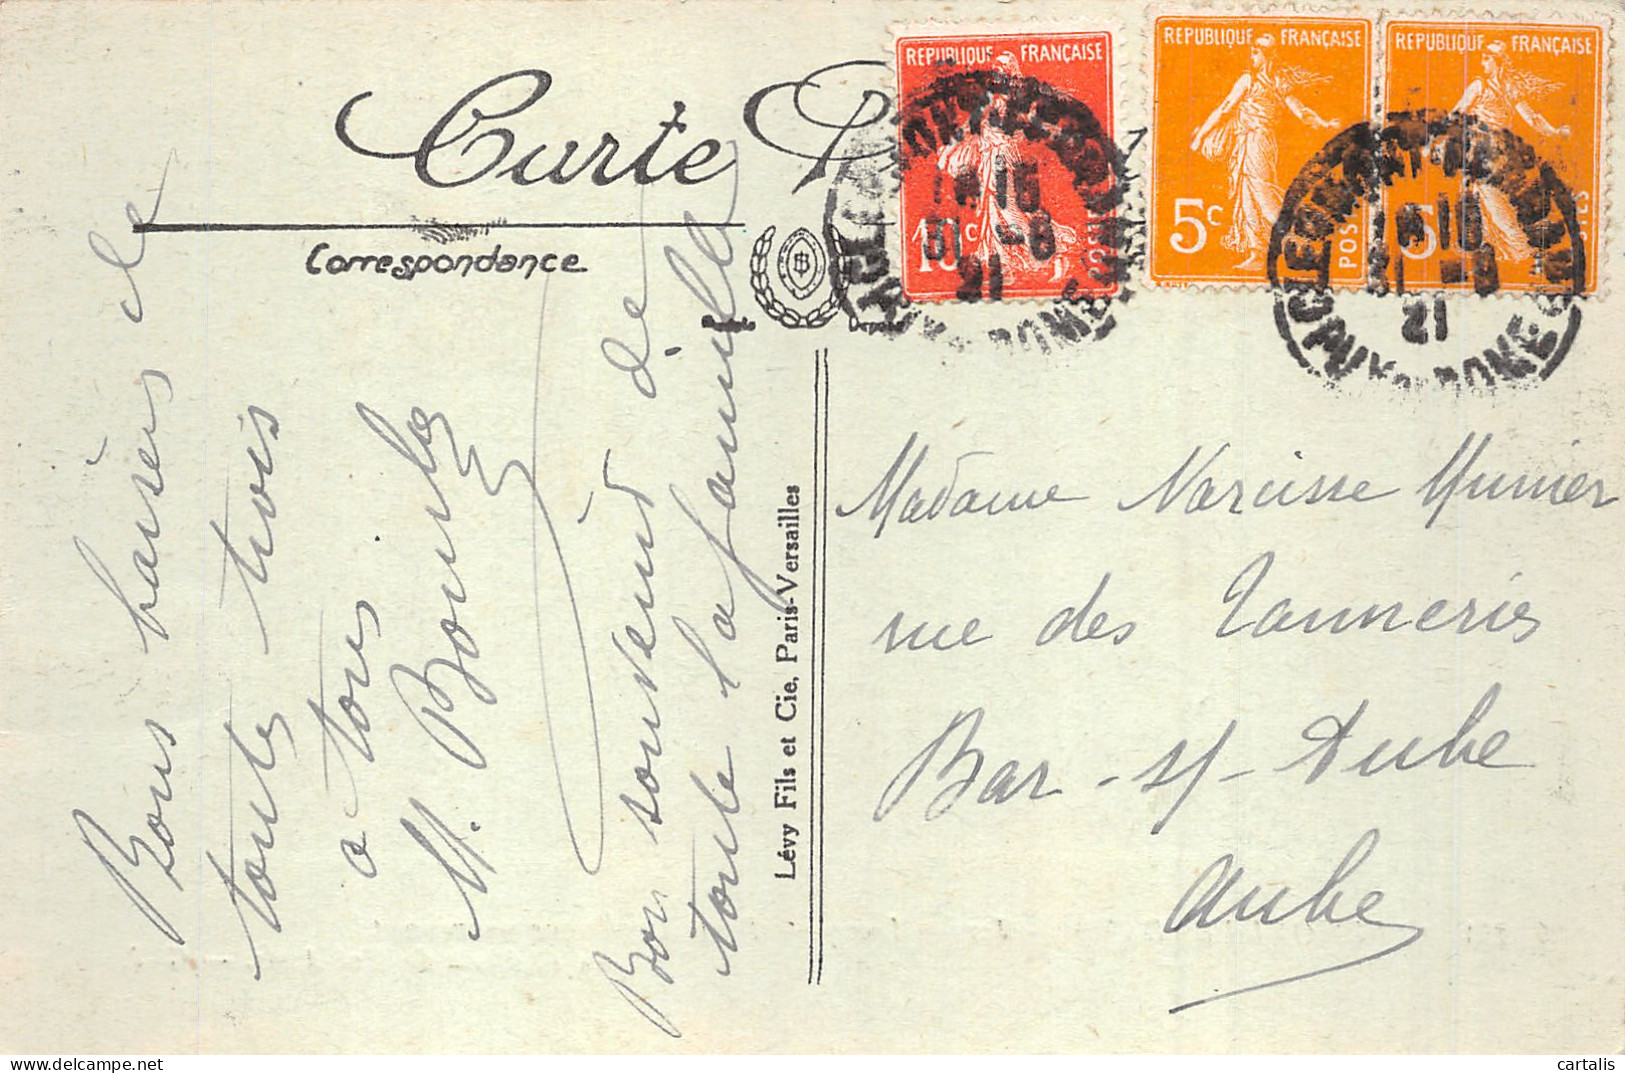 Carte P
Correspondance
REPUBLIQUE FRANÇAISE
10c
REPUBLIQUE FRANÇAISE
5c
POSTES
REPUBLIQUE FRANÇAISE
5
CLERMONT-FERRAND
31 -8
21
PUY DE DOME
CLERMONT-FERRAND
31 -8
21
PUY DE DOME
Bons baisers de
toutes trois
à tous
M.
Bon souvenir de
toute la famille
Lévy Fils et Cie, Paris-Versailles
Madame Narcisse Munier
rue des Tanneries
Bar-s/-Aube
Aube
cartalis
delcampe.net